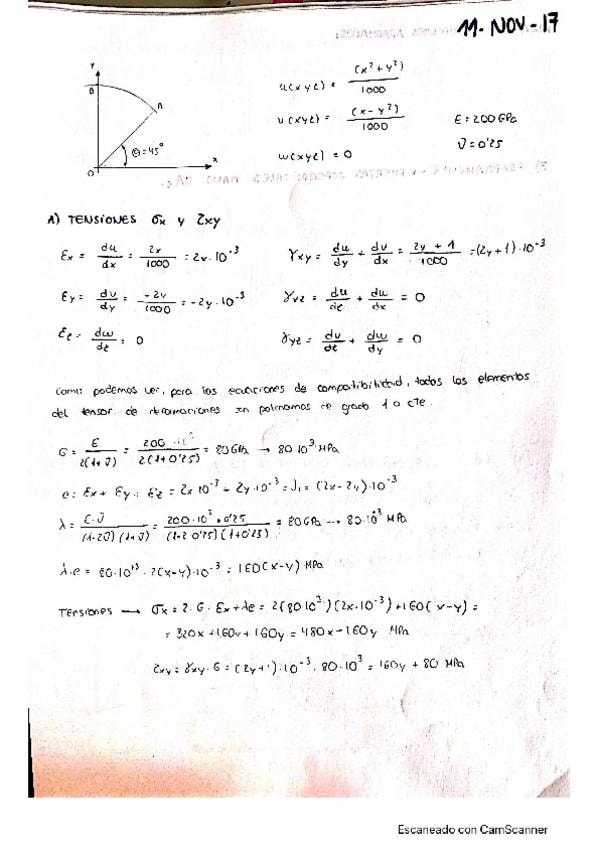 11-NOV-17
y
B
A
θ=45°
O
x
u(xyz) = (x²+y²)/1000
v(xyz) = (x-y²)/1000
w(xyz) = 0
E=200GPa
ν=0'25
A) TENSIONES σx y τxy
εx = du/dx = 2x/1000 = 2x·10⁻³
γxy = du/dy + dv/dx = 2y+1/1000 = (2y+1)·10⁻³
εy = dv/dy = -2y/1000 = -2y·10⁻³
γxz = du/dz + dw/dx = 0
εz = dw/dz = 0
γyz = dv/dz + dw/dy = 0
Como podemos ver, para las ecuaciones de compatibilidad, todos los elementos
del tensor de deformaciones son polinomios de grado 1 o cte.
G = E/2(1+ν) = 200·10³/2(1+0'25) = 80GPa → 80·10³ MPa
e = εx + εy + εz = 2x·10⁻³ - 2y·10⁻³ = J₁ = (2x-2y)·10⁻³
λ = E·ν/(1-2ν)(1+ν) = 200·10³·0'25/(1-2·0'25)(1+0'25) = 80GPa → 80·10³ MPa
λ·e = 80·10³·2(x-y)·10⁻³ = 160(x-y) MPa
Tensiones → σx = 2·G·εx+λe = 2(80·10³)(2x·10⁻³)+160(x-y) =
= 320x+160x+160y = 480x-160y MPa
τxy = γxy·G = (2y+1)·10⁻³·80·10³ = 160y + 80 MPa
Escaneado con CamScanner